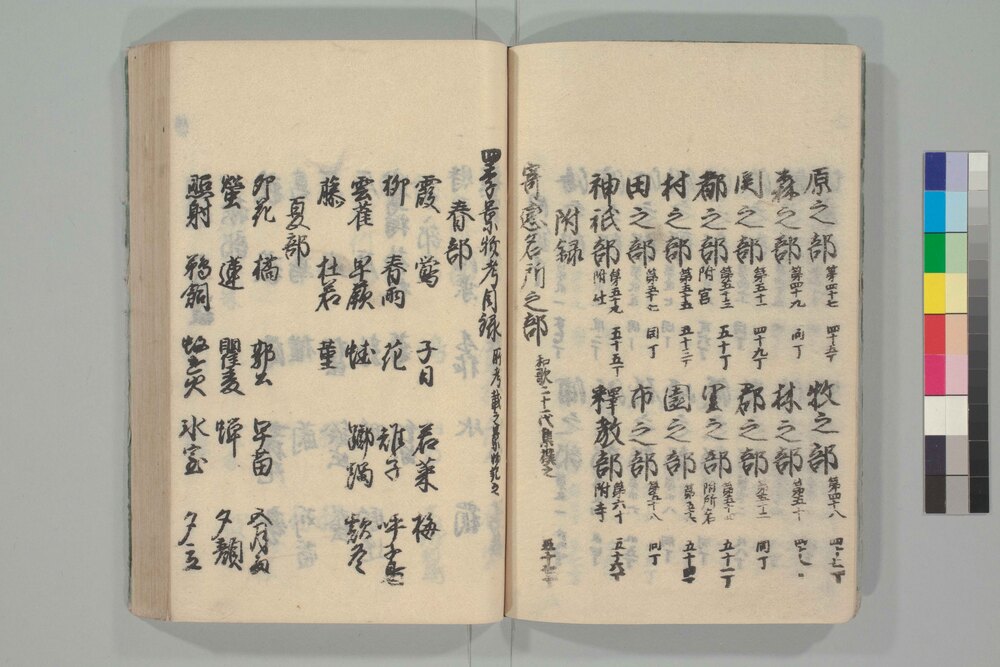 原之部 第四十七 四十五丁 牧之部 第四十八 四十七丁
森之部 第四十九 同丁 林之部 第五十
関之部 第五十一 四十九丁 郡之部 同丁
都之部 附宮 第五十三 五十丁 里之部 附所名 五十一丁
村之部 第五十五 五十二丁 園之部 第五十六 五十四丁
田之部 第五十七 同丁 市之部 第五十八 同丁
神祇部 附社 第五十九 五十五丁 釋教部 附寺 第六十 五十六丁
附録
寄恋名所之部 和歌二十一代集撰之
四季景物考目録 所考載之景物記之
春部
霞 鶯 子日 若菜 梅
柳 春雨 花 雉子 呼子鳥
雲雀 早蕨 蛙 躑躅 款冬
藤 杜若 菫
夏部
卯花 橘 郭公 早苗 五月雨
螢 蓮 瞿麦 蝉 夕顔
照射 鵜飼 蚊遣火 氷室 夕立